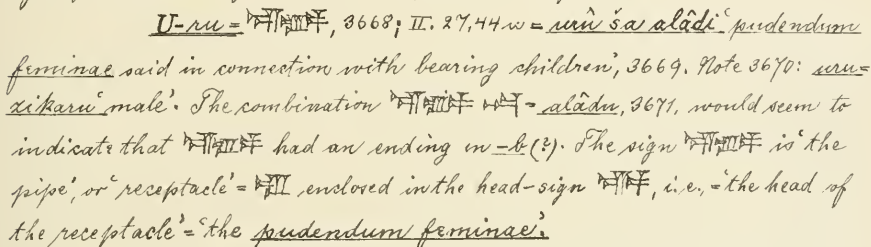 U-ru = , 3668; II. 27, 44 w = urû ša alâdi ‘pudendum
feminae said in connection with bearing children’, 3669. Note 3670: uru =
zikaru ‘male’. The combination = alâdu, 3671, would seem to
indicate that had an ending in -b (?). The sign is ‘the
pipe’, or ‘receptacle’ = enclosed in the head-sign , i.e., = ‘the head of
the receptacle’ = ‘the pudendum feminae’.